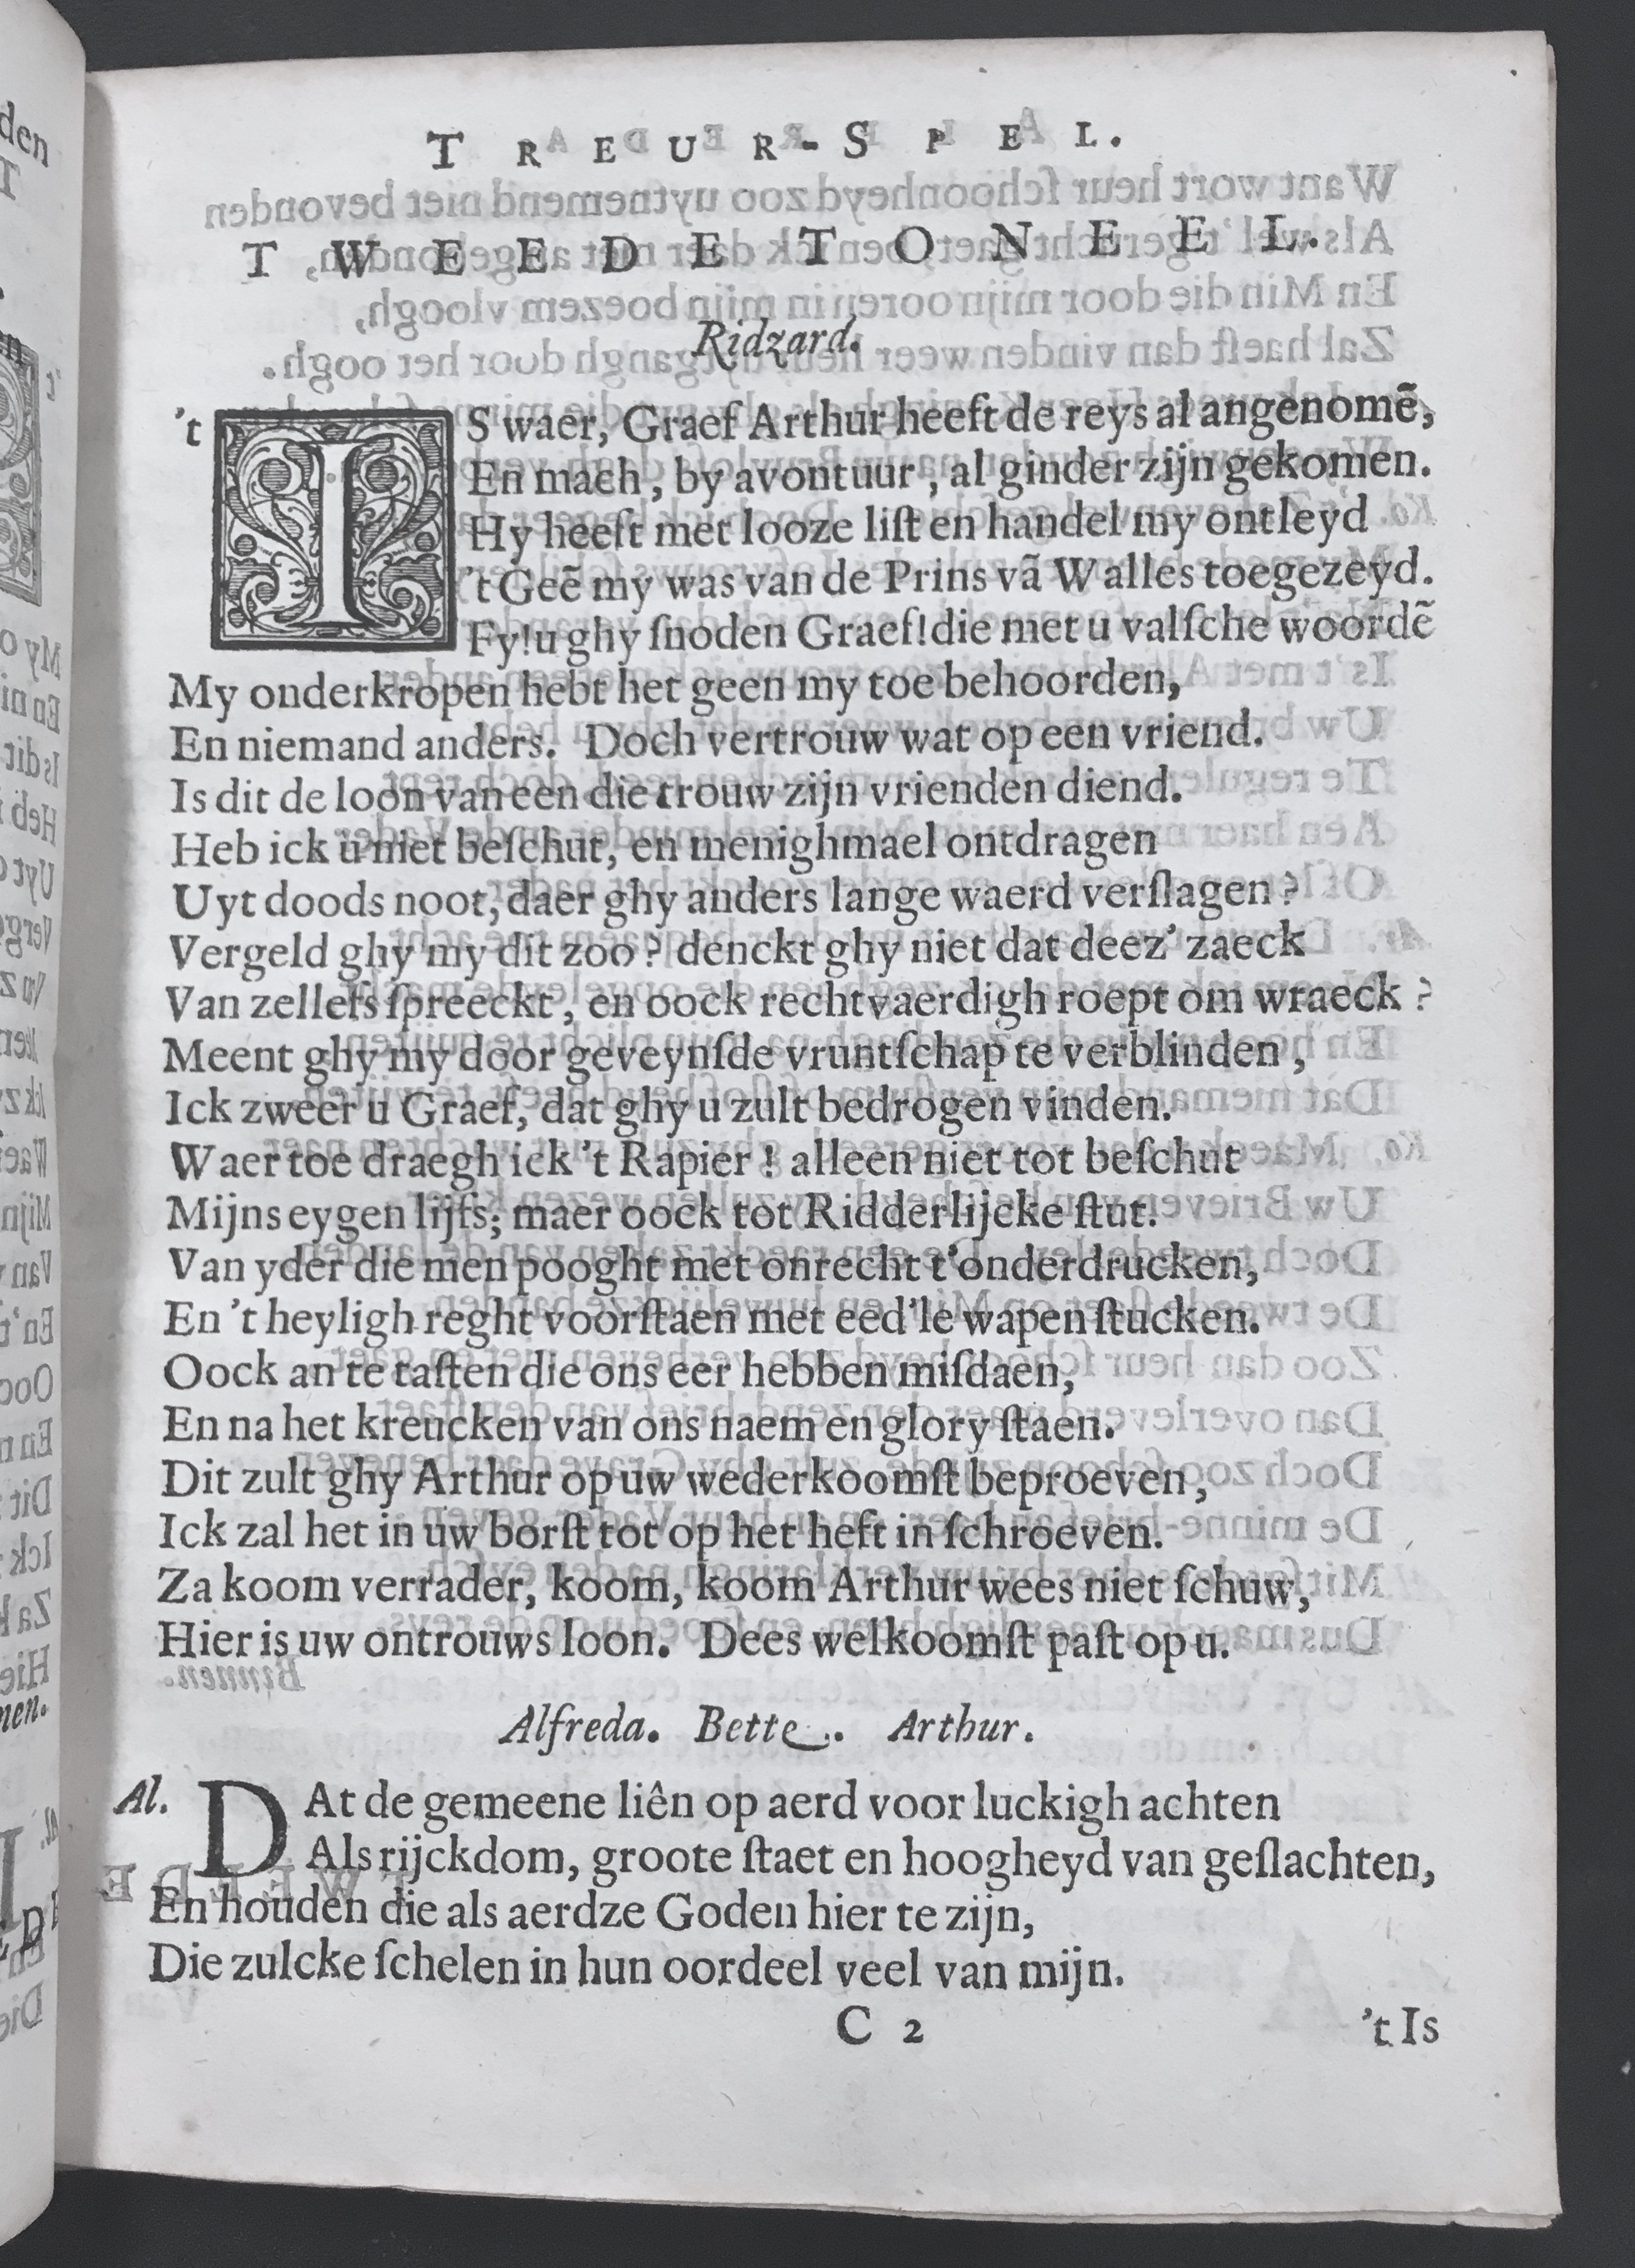 TREUR-SPEL.
TWEEDE TONEEL.
Ridzard.
't IS waer, Graef Arthur heeft de reys al angenomẽ,
En mach, by avontuur, al ginder zijn gekomen.
Hy heeft met looze liſt en handel my ontleyd
't Geẽ my was van de Prins vã Walles toegezeyd.
Fy! u ghy ſnoden Graef! die met u valſche woordẽ
My onderkropen hebt het geen my toe behoorden,
En niemand anders. Doch vertrouw wat op een vriend.
Is dit de loon van een die trouw zijn vrienden diend.
Heb ick u niet beſchut, en menighmael ontdragen
Uyt doods noot, daer ghy anders lange waerd verſlagen?
Vergeld ghy my dit zoo? denckt ghy niet dat deez' zaeck
Van zellefs ſpreeckt, en oock rechtvaerdigh roept om wraeck?
Meent ghy my door geveynſde vruntſchap te verblinden,
Ick zweer u Graef, dat ghy u zult bedrogen vinden.
Waer toe draegh ick 't Rapier! alleen niet tot beſchut
Mijns eygen lijfs; maer oock tot Ridderlijcke ſtut.
Van yder die men pooght met onrecht t'onderdrucken,
En 't heyligh reght voorſtaen met eed'le wapen ſtucken.
Oock an te taſten die ons eer hebben miſdaen,
En na het kreucken van ons naem en glory ſtaen.
Dit zult ghy Arthur op uw wederkoomſt beproeven,
Ick zal het in uw borſt tot op het heft in ſchroeven.
Za koom verrader, koom, koom Arthur wees niet ſchuw,
Hier is uw ontrouws loon. Dees welkoomſt paſt op u.
Alfreda. Bette. Arthur.
Al. DAt de gemeene liên op aerd voor luckigh achten
Als rijckdom, groote ſtaet en hoogheyd van geſlachten,
En houden die als aerdze Goden hier te zijn,
Die zulcke ſchelen in hun oordeel veel van mijn.
C 2 't Is